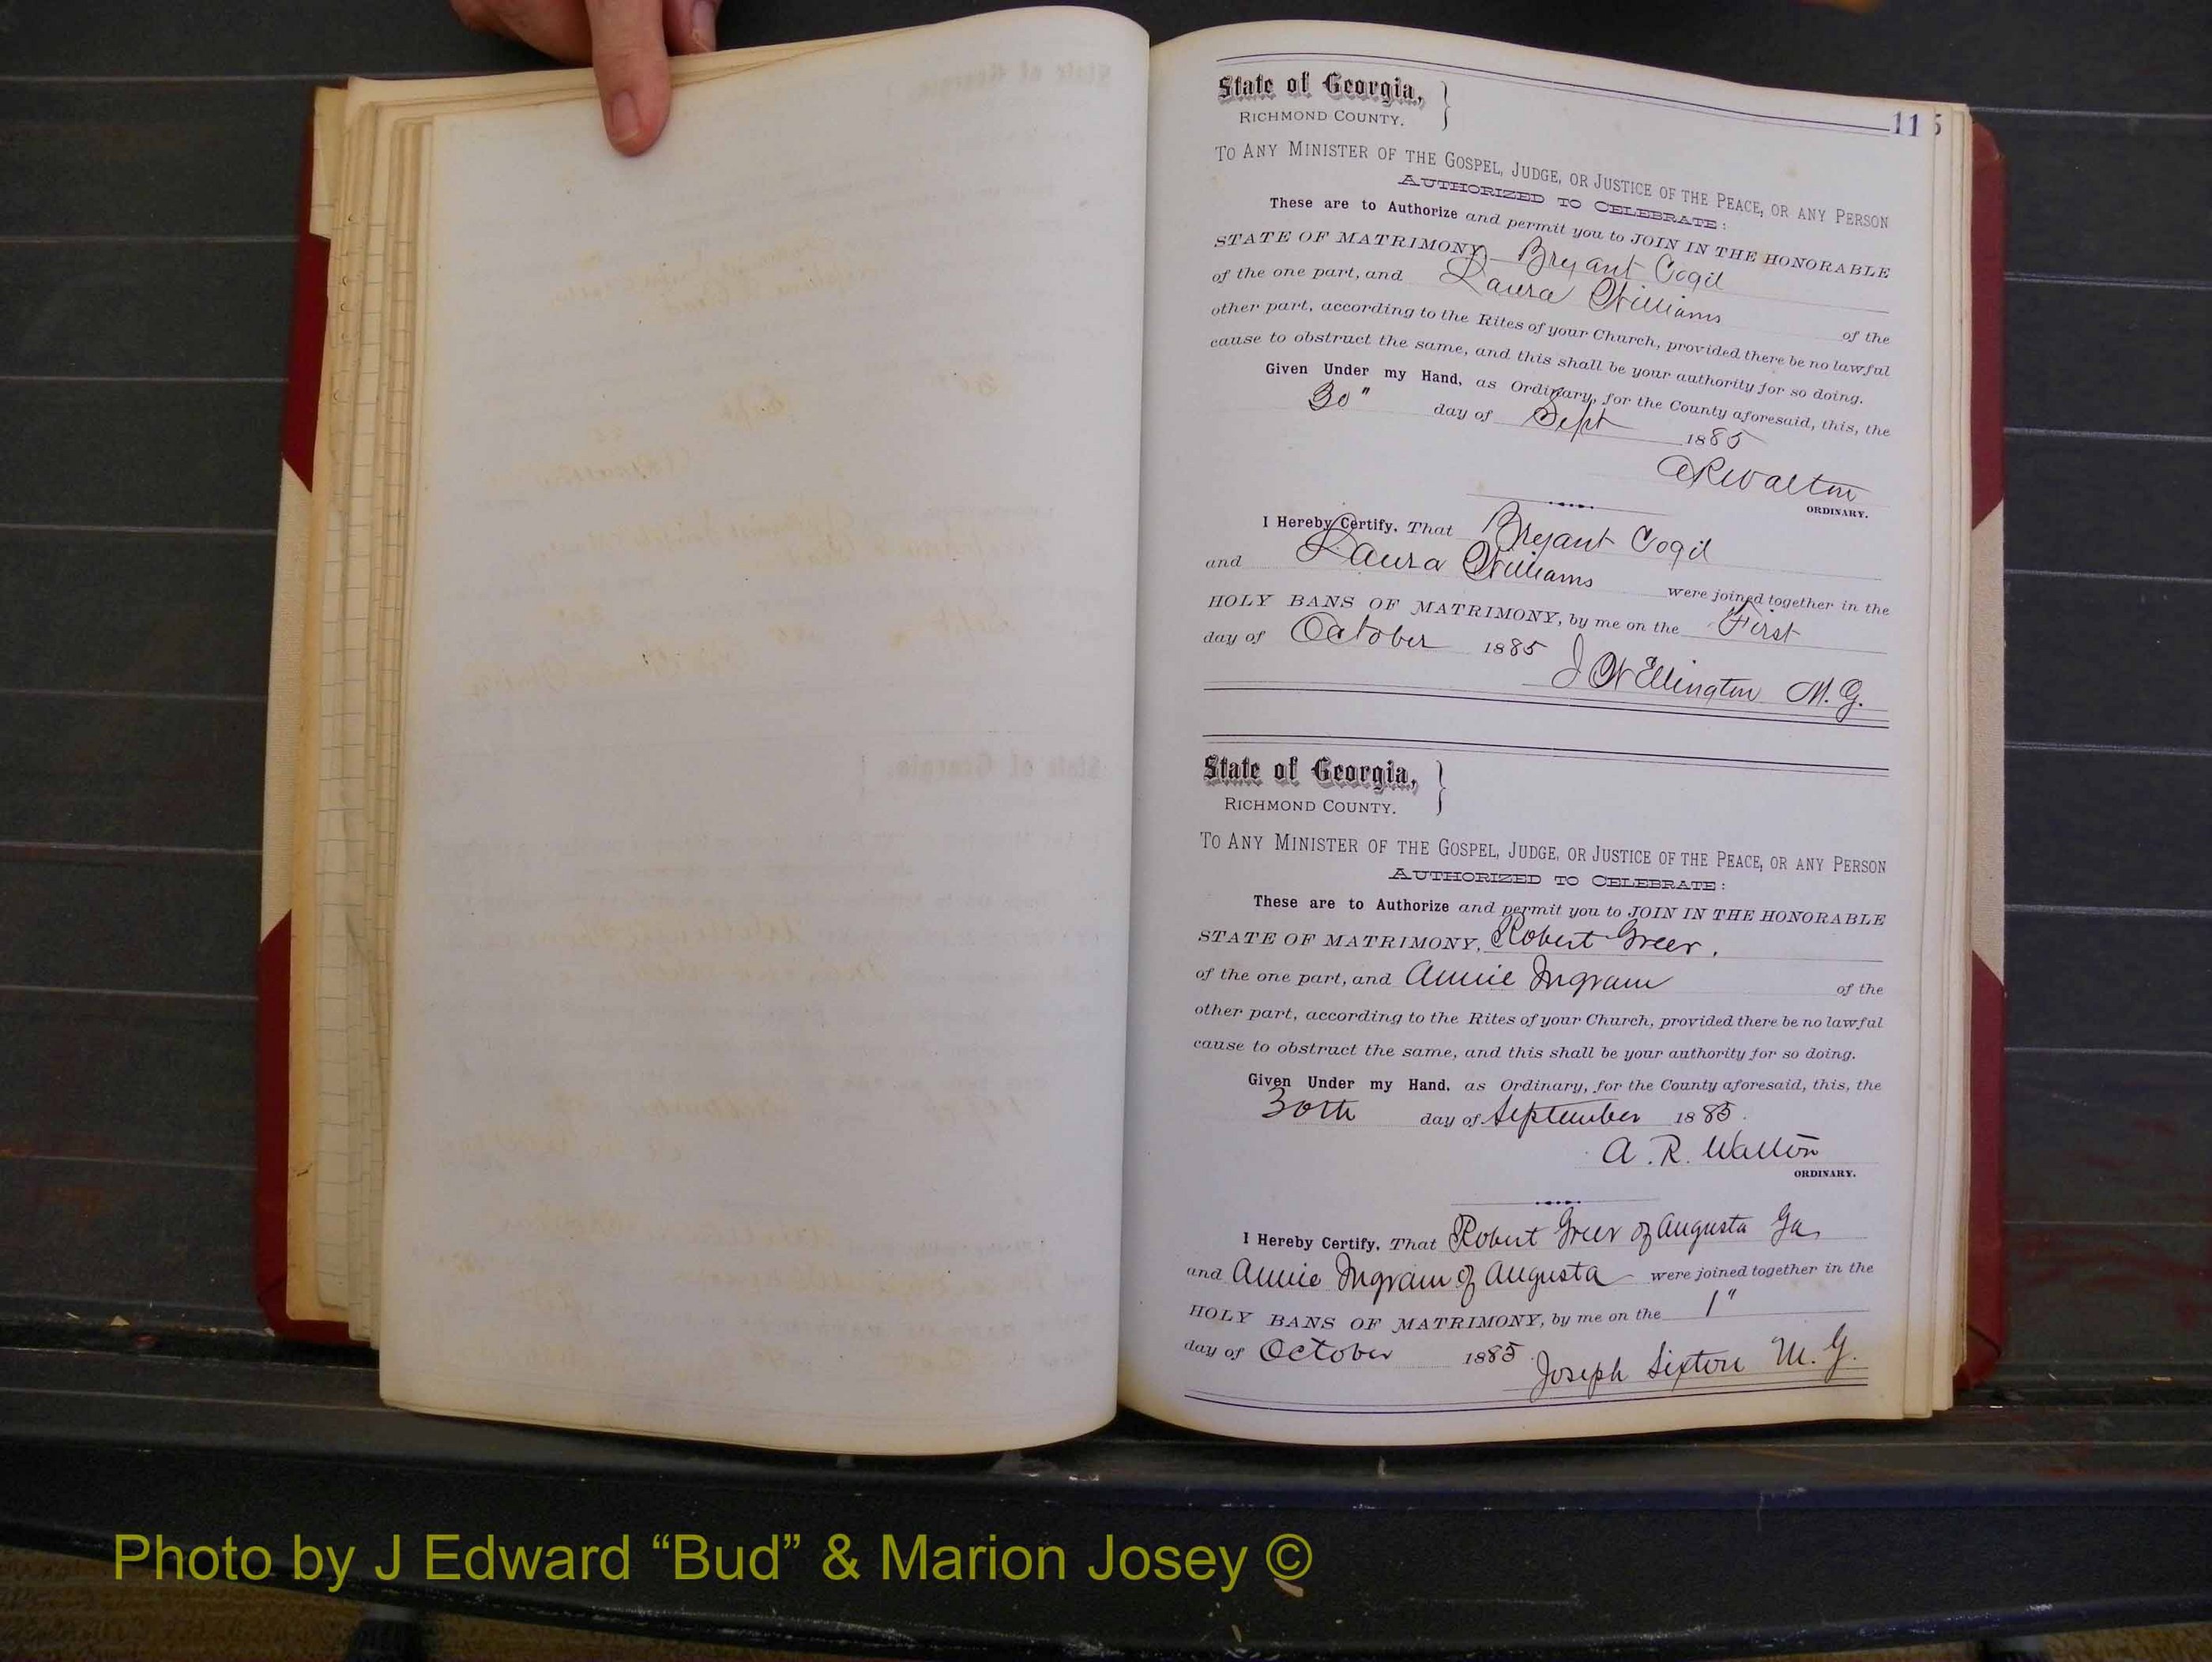 115
State of Georgia,
RICHMOND COUNTY.
TO ANY MINISTER OF THE GOSPEL, JUDGE, OR JUSTICE OF THE PEACE, OR ANY PERSON
AUTHORIZED TO CELEBRATE:
These are to Authorize and permit you to JOIN IN THE HONORABLE
STATE OF MATRIMONY, Bryant Cogil
of the one part, and Laura Williams of the
other part, according to the Rites of your Church, provided there be no lawful
cause to obstruct the same, and this shall be your authority for so doing.
Given Under my Hand, as Ordinary, for the County aforesaid, this, the
30" day of Sept 1885
A R Walton
ORDINARY.
I Hereby Certify, That Bryant Cogil
and Laura Williams were joined together in the
HOLY BANS OF MATRIMONY, by me on the First
day of October 1885
J W Ellington M. G.
State of Georgia,
RICHMOND COUNTY.
TO ANY MINISTER OF THE GOSPEL, JUDGE, OR JUSTICE OF THE PEACE, OR ANY PERSON
AUTHORIZED TO CELEBRATE:
These are to Authorize and permit you to JOIN IN THE HONORABLE
STATE OF MATRIMONY, Robert Greer,
of the one part, and Annie Ingram of the
other part, according to the Rites of your Church, provided there be no lawful
cause to obstruct the same, and this shall be your authority for so doing.
Given Under my Hand, as Ordinary, for the County aforesaid, this, the
30th day of September 1885.
A. R. Walton
ORDINARY.
I Hereby Certify, That Robert Greer of Augusta Ga
and Annie Ingram of Augusta were joined together in the
HOLY BANS OF MATRIMONY, by me on the 1"
day of October 1885.
Joseph Sixton M. G.
Photo by J Edward “Bud” & Marion Josey ©